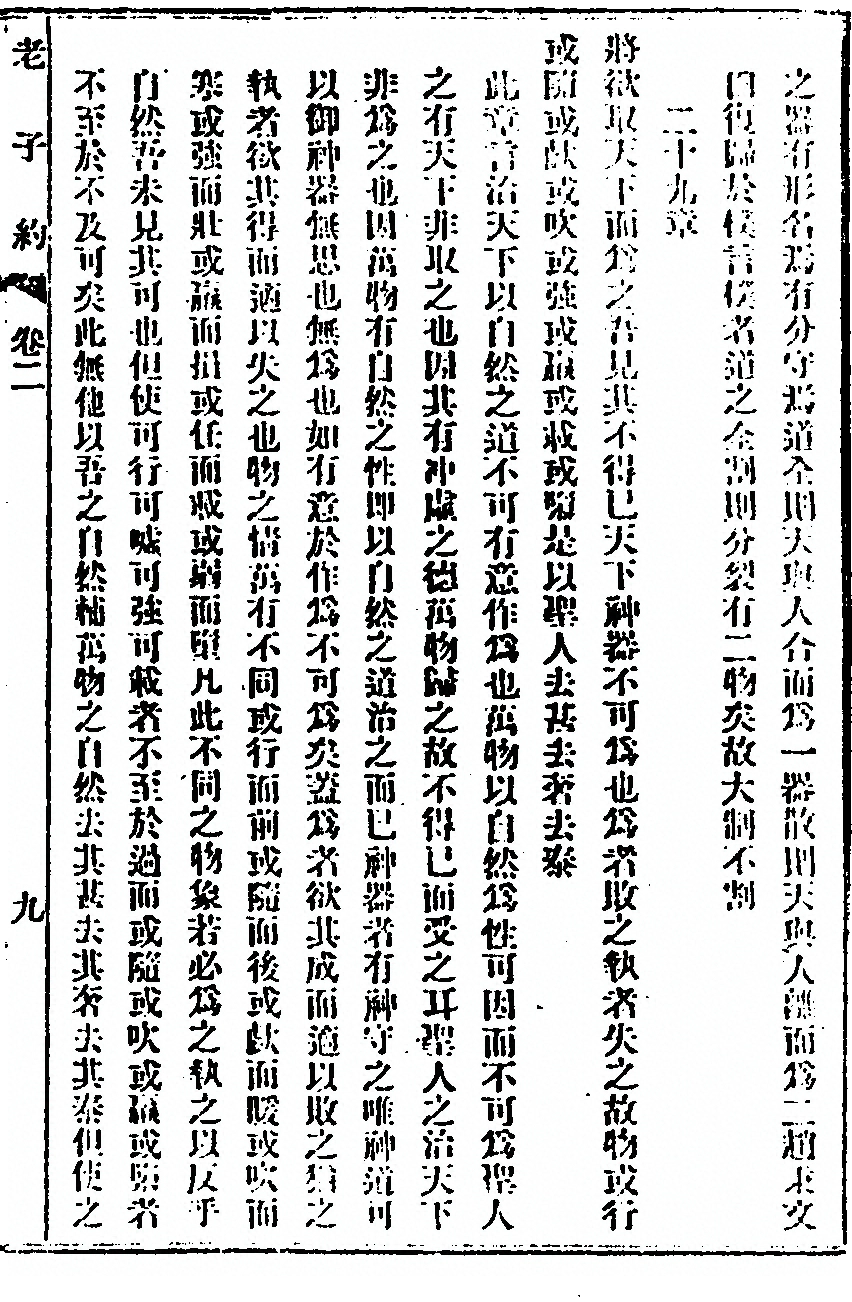 之器有形名爲有分守爲道全則天與人合而爲一器散則天與人離而爲二趙秉文
曰復歸於樸言樸者道之全割則分裂有二物矣故大制不割
二十九章
將欲取天下而爲之吾見其不得已天下神器不可爲也爲者敗之執者失之故物或行
或隨或歔或吹或強或羸或載或隳是以聖人去甚去奢去泰
此章言治天下以自然之道不可有意作爲也萬物以自然爲性可因而不可爲聖人
之有天下非取之也因其有沖虛之德萬物歸之故不得已而受之耳聖人之治天下
非爲之也因萬物有自然之性卽以自然之道治之而已神器者有神守之唯神道可
以御神器無思也無爲也如有意於作爲不可爲矣蓋爲者欲其成而適以敗之猶之
執者欲其得而適以失之也物之情萬有不同或行而前或隨而後或歔而暖或吹而
寒或強而壯或羸而損或任而載或弱而墮凡此不同之物象若必爲之執之以反乎
自然吾未見其可也但使可行可噓可強可載者不至於過而或隨或吹或羸或墮者
不至於不及可矣此無他以吾之自然輔萬物之自然去其甚去其奢去其泰但使之
老子約
卷二
九